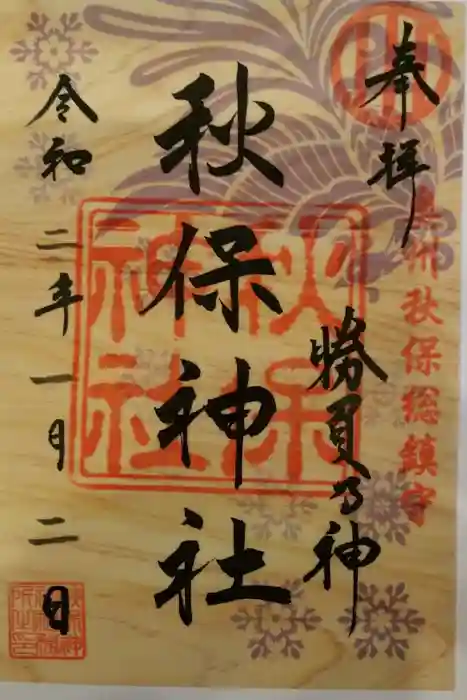 奉拝
奥州秋保総鎮守
勝負乃神
秋保神社
秋保
神社
令和二年一月二日